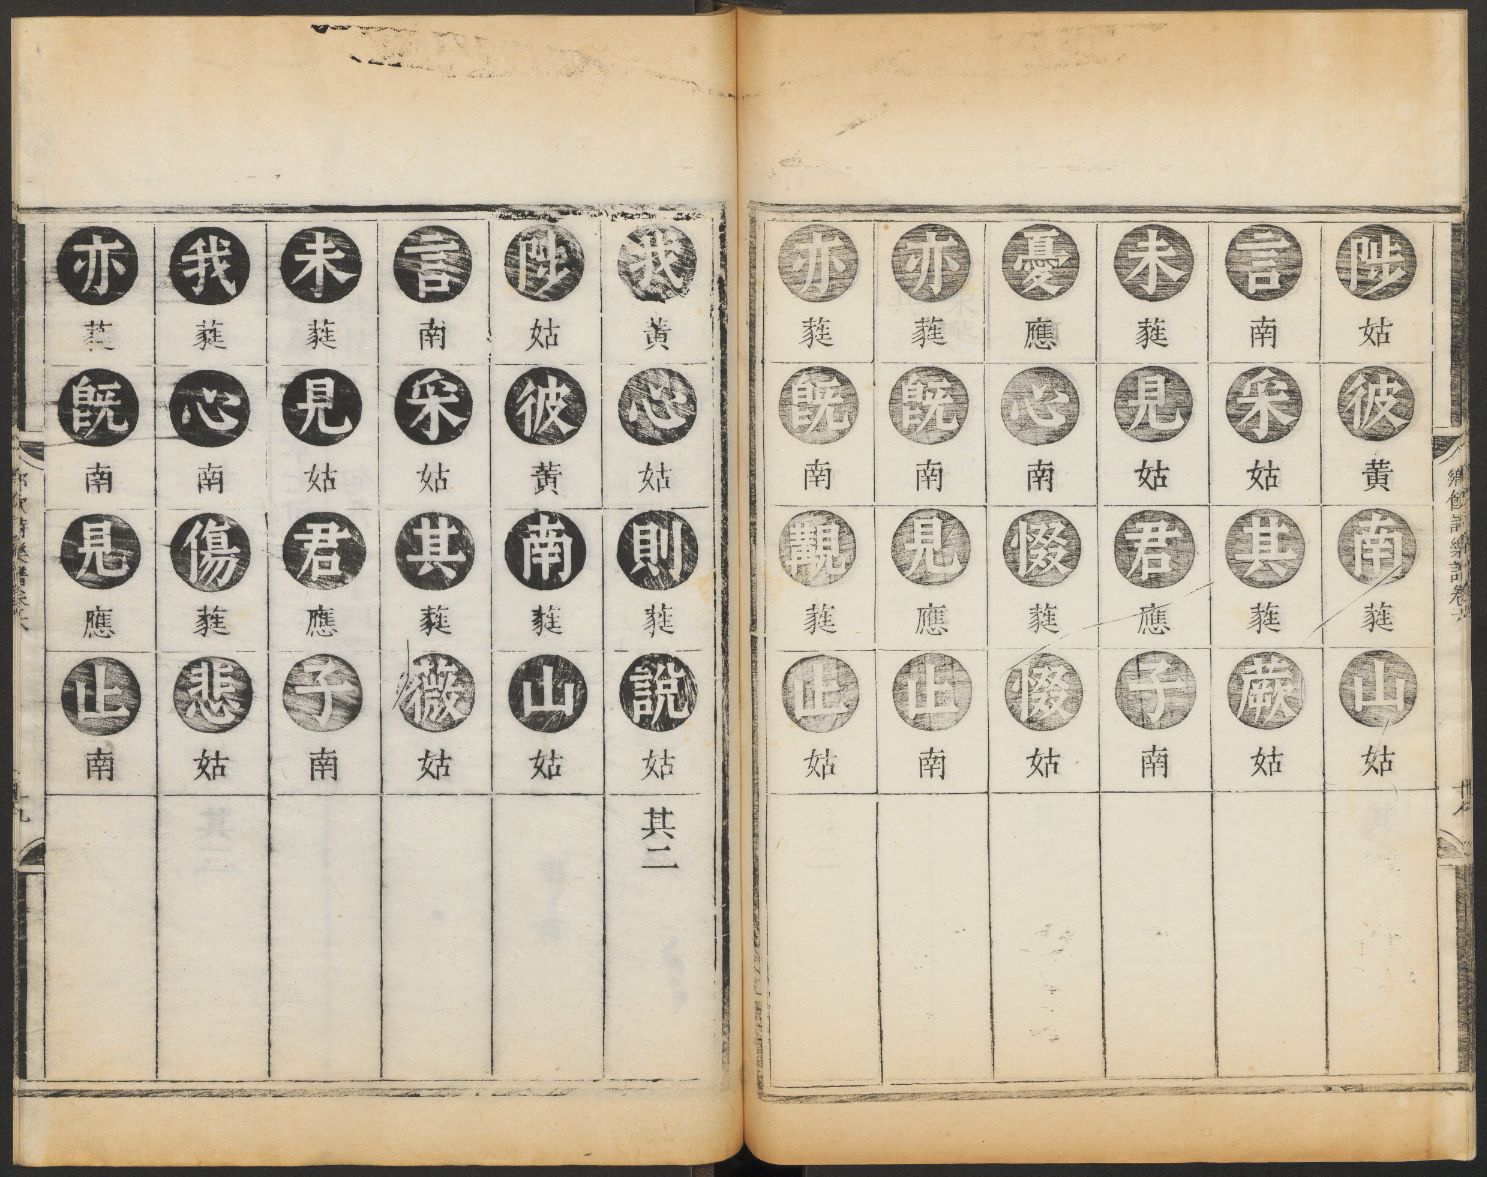 陟姑彼黄南蕤山姑
言南采姑其蕤蕨姑
未蕤見姑君應子南
憂應心南惙蕤惙姑
亦蕤旣南見應止南
亦蕤旣南覯蕤止姑
我黃心姑則蕤說姑其二
陟姑彼黃南蕤山姑
言南采姑其蕤薇姑
未蕤見姑君應子南
我蕤心南傷蕤悲姑
亦蕤旣南見應止南
鄉飲詩樂譜卷六